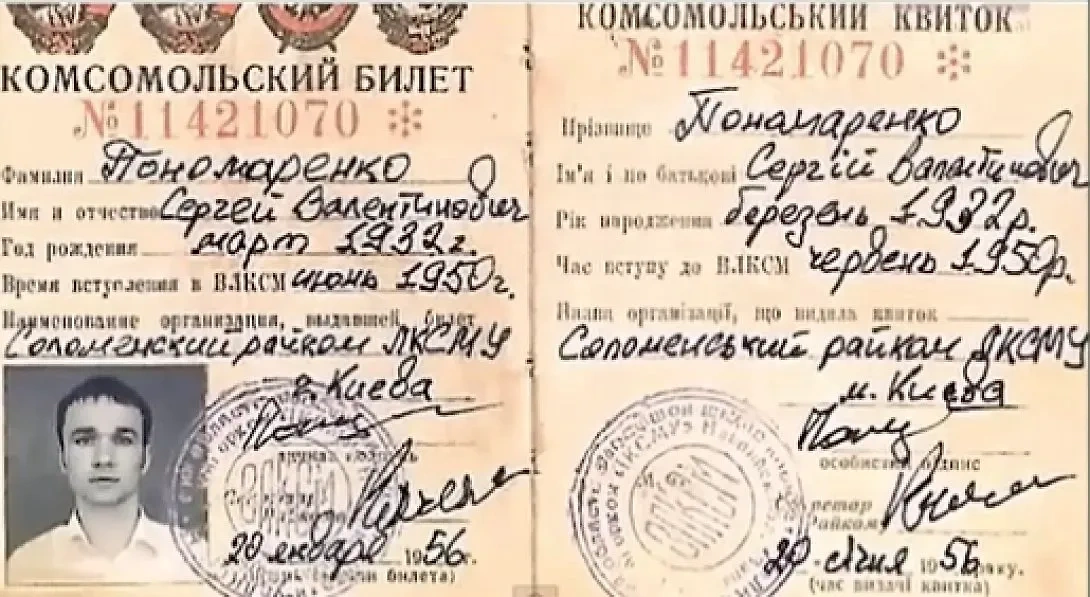 КОМСОМОЛЬСКИЙ БИЛЕТ
№ 11421070
Фамилия Пономаренко
Имя и отчество Сергей Валентинович
Год рождения март 1932 г.
Время вступления в ВЛКСМ июнь 1950 г.
Наименование организации, выдавшей билет
Соломенский райком ЛКСМУ
г. Киева
20 января 1956 г.
билета)
КОМСОМОЛЬСЬКИЙ КВИТОК
№ 11421070
Прізвище Пономаренко
Ім'я і по батькові Сергій Валентинович
Рік народження березень 1932 р.
Час вступу до ВЛКСМ червень 1950 р.
Назва організації, що видала квиток
Соломенський райком ЛКСМУ
м. Києва
особистий підпис
Секретар
Райкому
20 січня 1956 року.
(час видачі квитка)